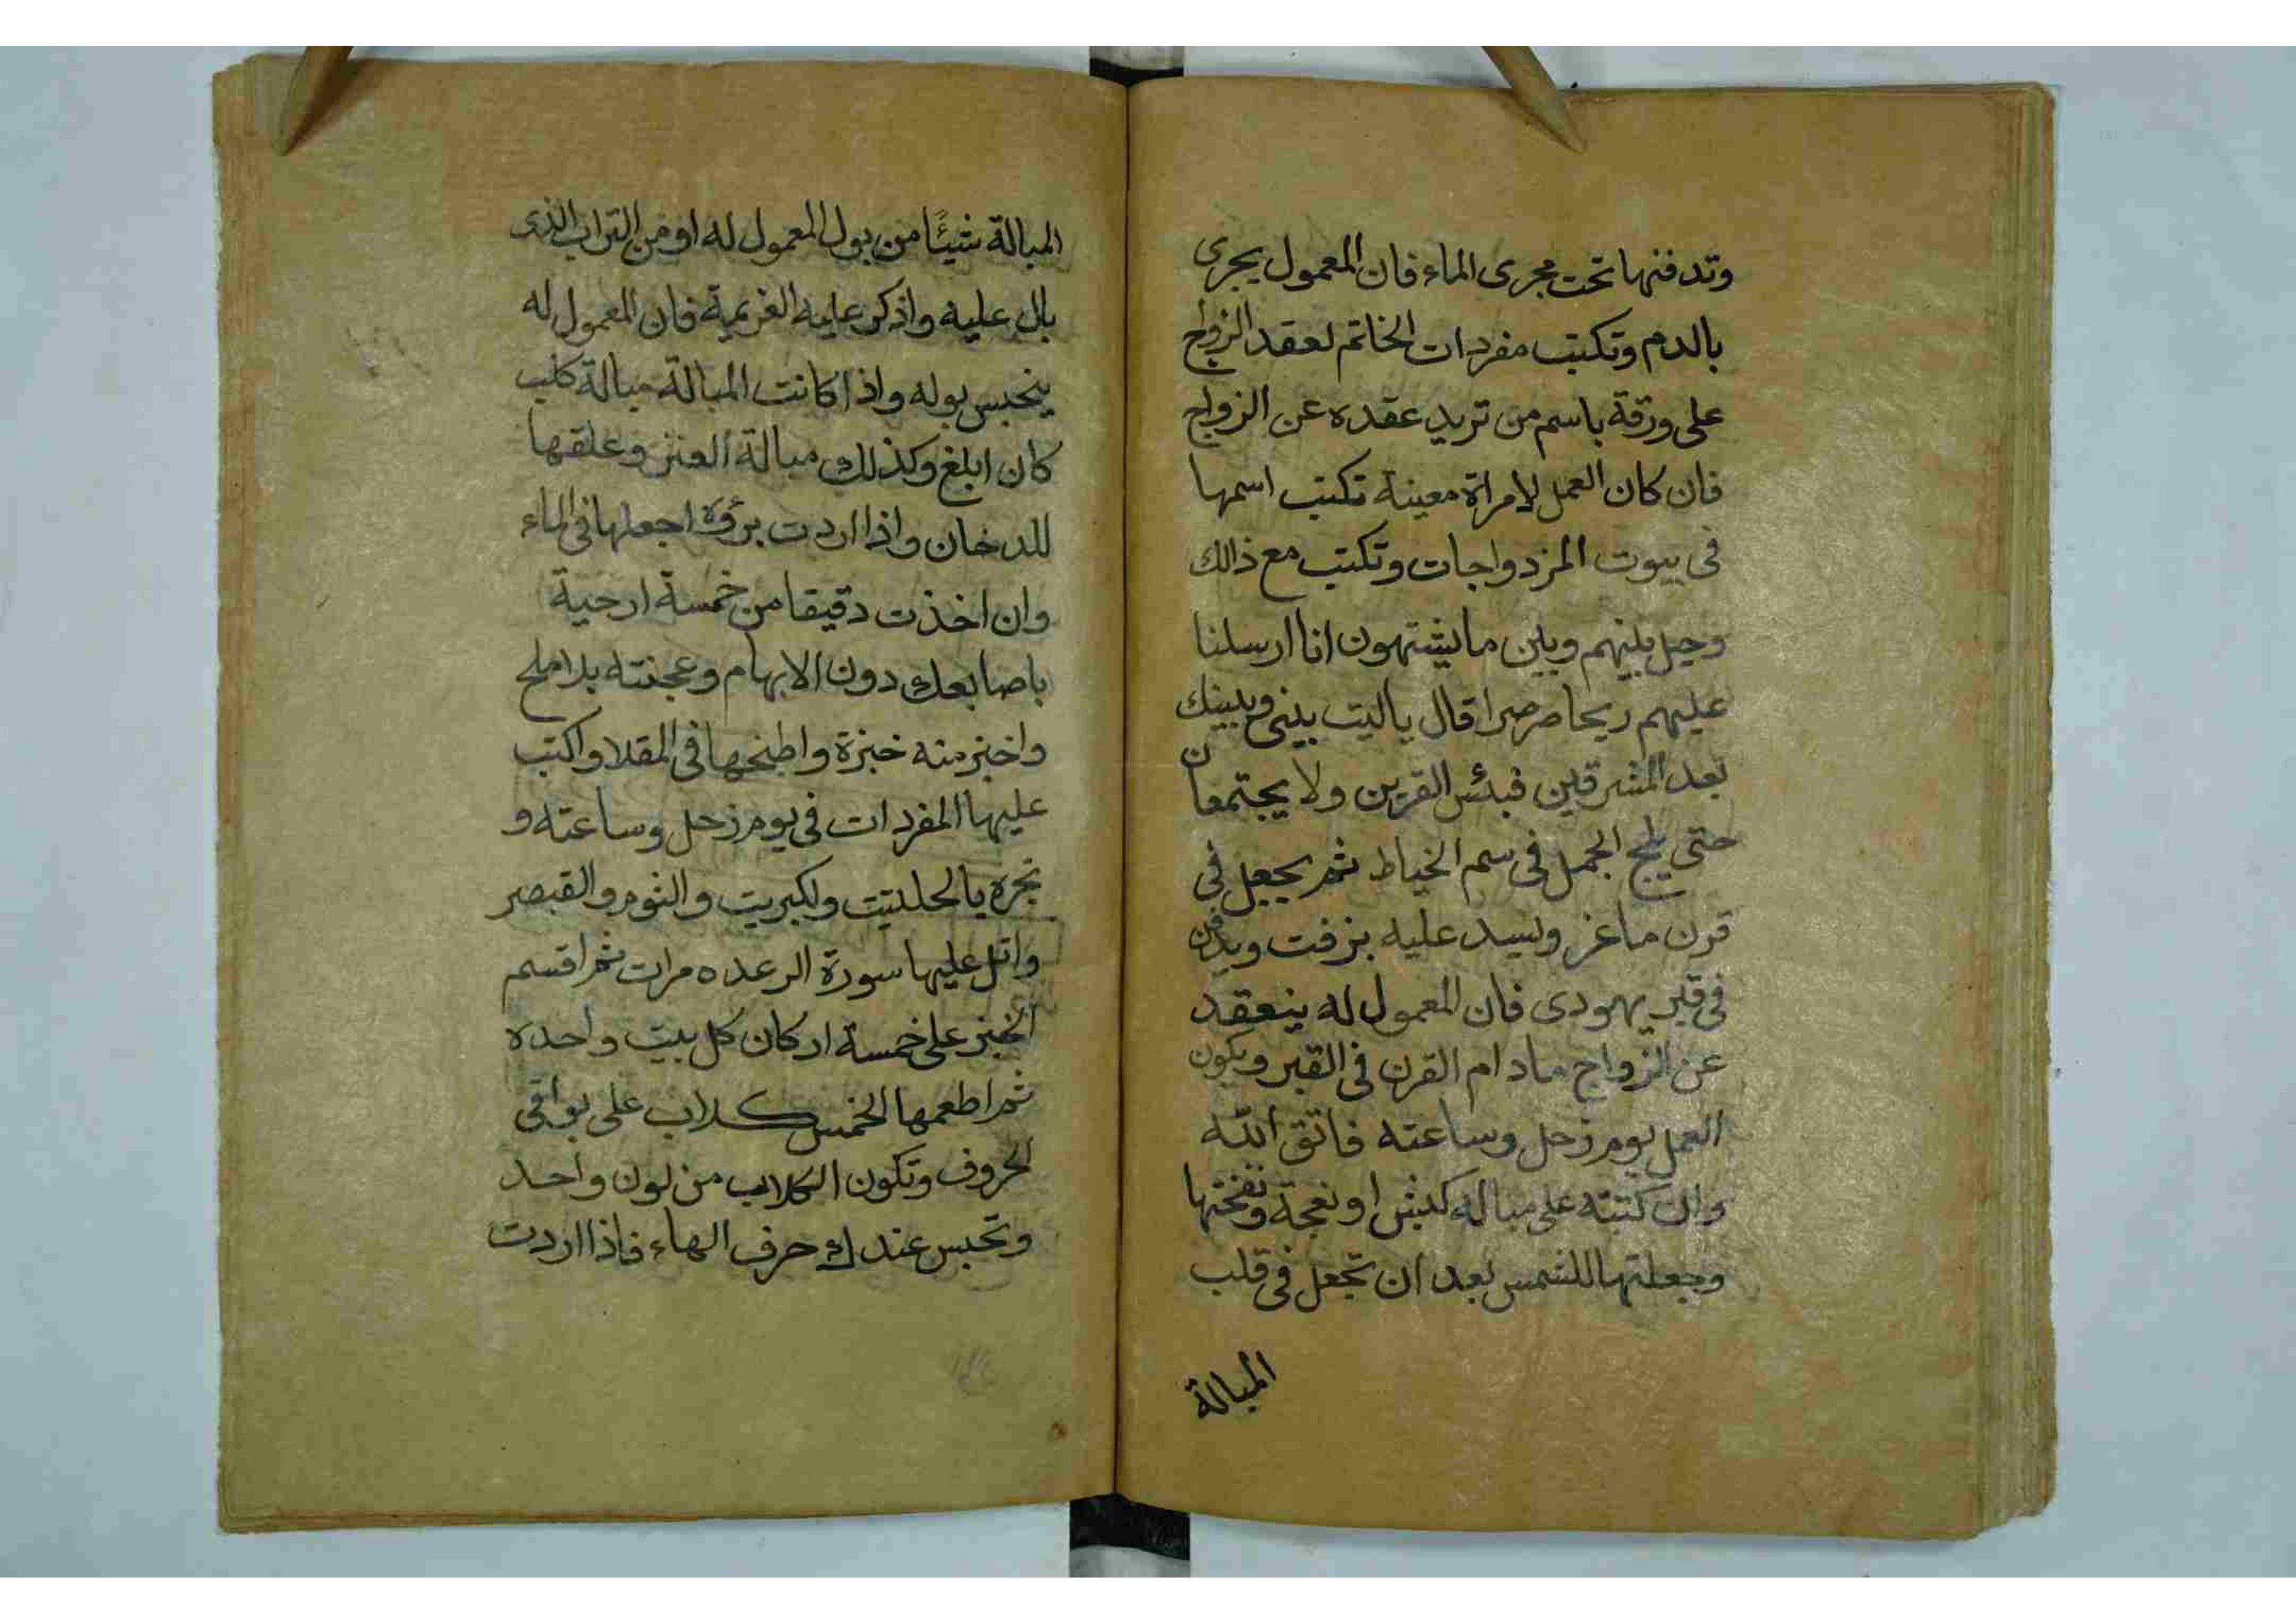 وتدفنها تحت مجرى الماء فان المعمول يجرى
بالدم وتكتب مفردات الخاتم لعقد الزواج
على ورقة باسم من تريد عقده عن الزواج
فان كان العمل لامراة معينة تكتب اسمها
فى بيوت المزدواجات وتكتب مع ذالك
وحيل بينهم وبين ما يشتهون انا ارسلنا
عليهم ريحا صرصرا قال ياليت بينى وبينك
بعد المشرقين فبئس القرين ولا يجتمعان
حتى يلج الجمل فى سم الخياط ثم يجعل فى
قرن ماغز ويسد عليه بزفت ويدفن
فى قبر يهودى فان المعمول له ينعقد
عن الزواج مادام القرن فى القبر ويكون
العمل يوم زحل وساعته فاتق الله
وان كتبته على مباله كبش او نعجة ونفختها
وجعلتها للشمس بعد ان تجعل فى قلب
المبالة
المبالة شيئًا من بول المعمول له او من التراب الذى
بال عليه واذكر عليه الغريمية فان المعمول له
ينحبس بوله واذا كانت المبالة مبالة كلب
كان ابلغ وكذلك مبالة العنز وعلقها
للدخان واذا اردت برؤه اجعلها فى الماء
وان اخذت دقيقا من خمسة ارحية
باصابعك دون الابهام وعجنته بلا ملح
واخبز منه خبزة واطبخها فى المقلا واكتب
عليها المفردات فى يوم زحل وساعته و
بخره بالحلتيت ولكبريت والثوم والقبصر
واتل عليها سورة الرعد ٥ مرات ثم اقسم
الخبز على خمسة اركان كل بيت واحده
ثم اطعمها الخمس كلاب على بواقى
الحروف وتكون الكلاب من لون واحد
وتحبس عندك حرف الهاء فاذا اردت